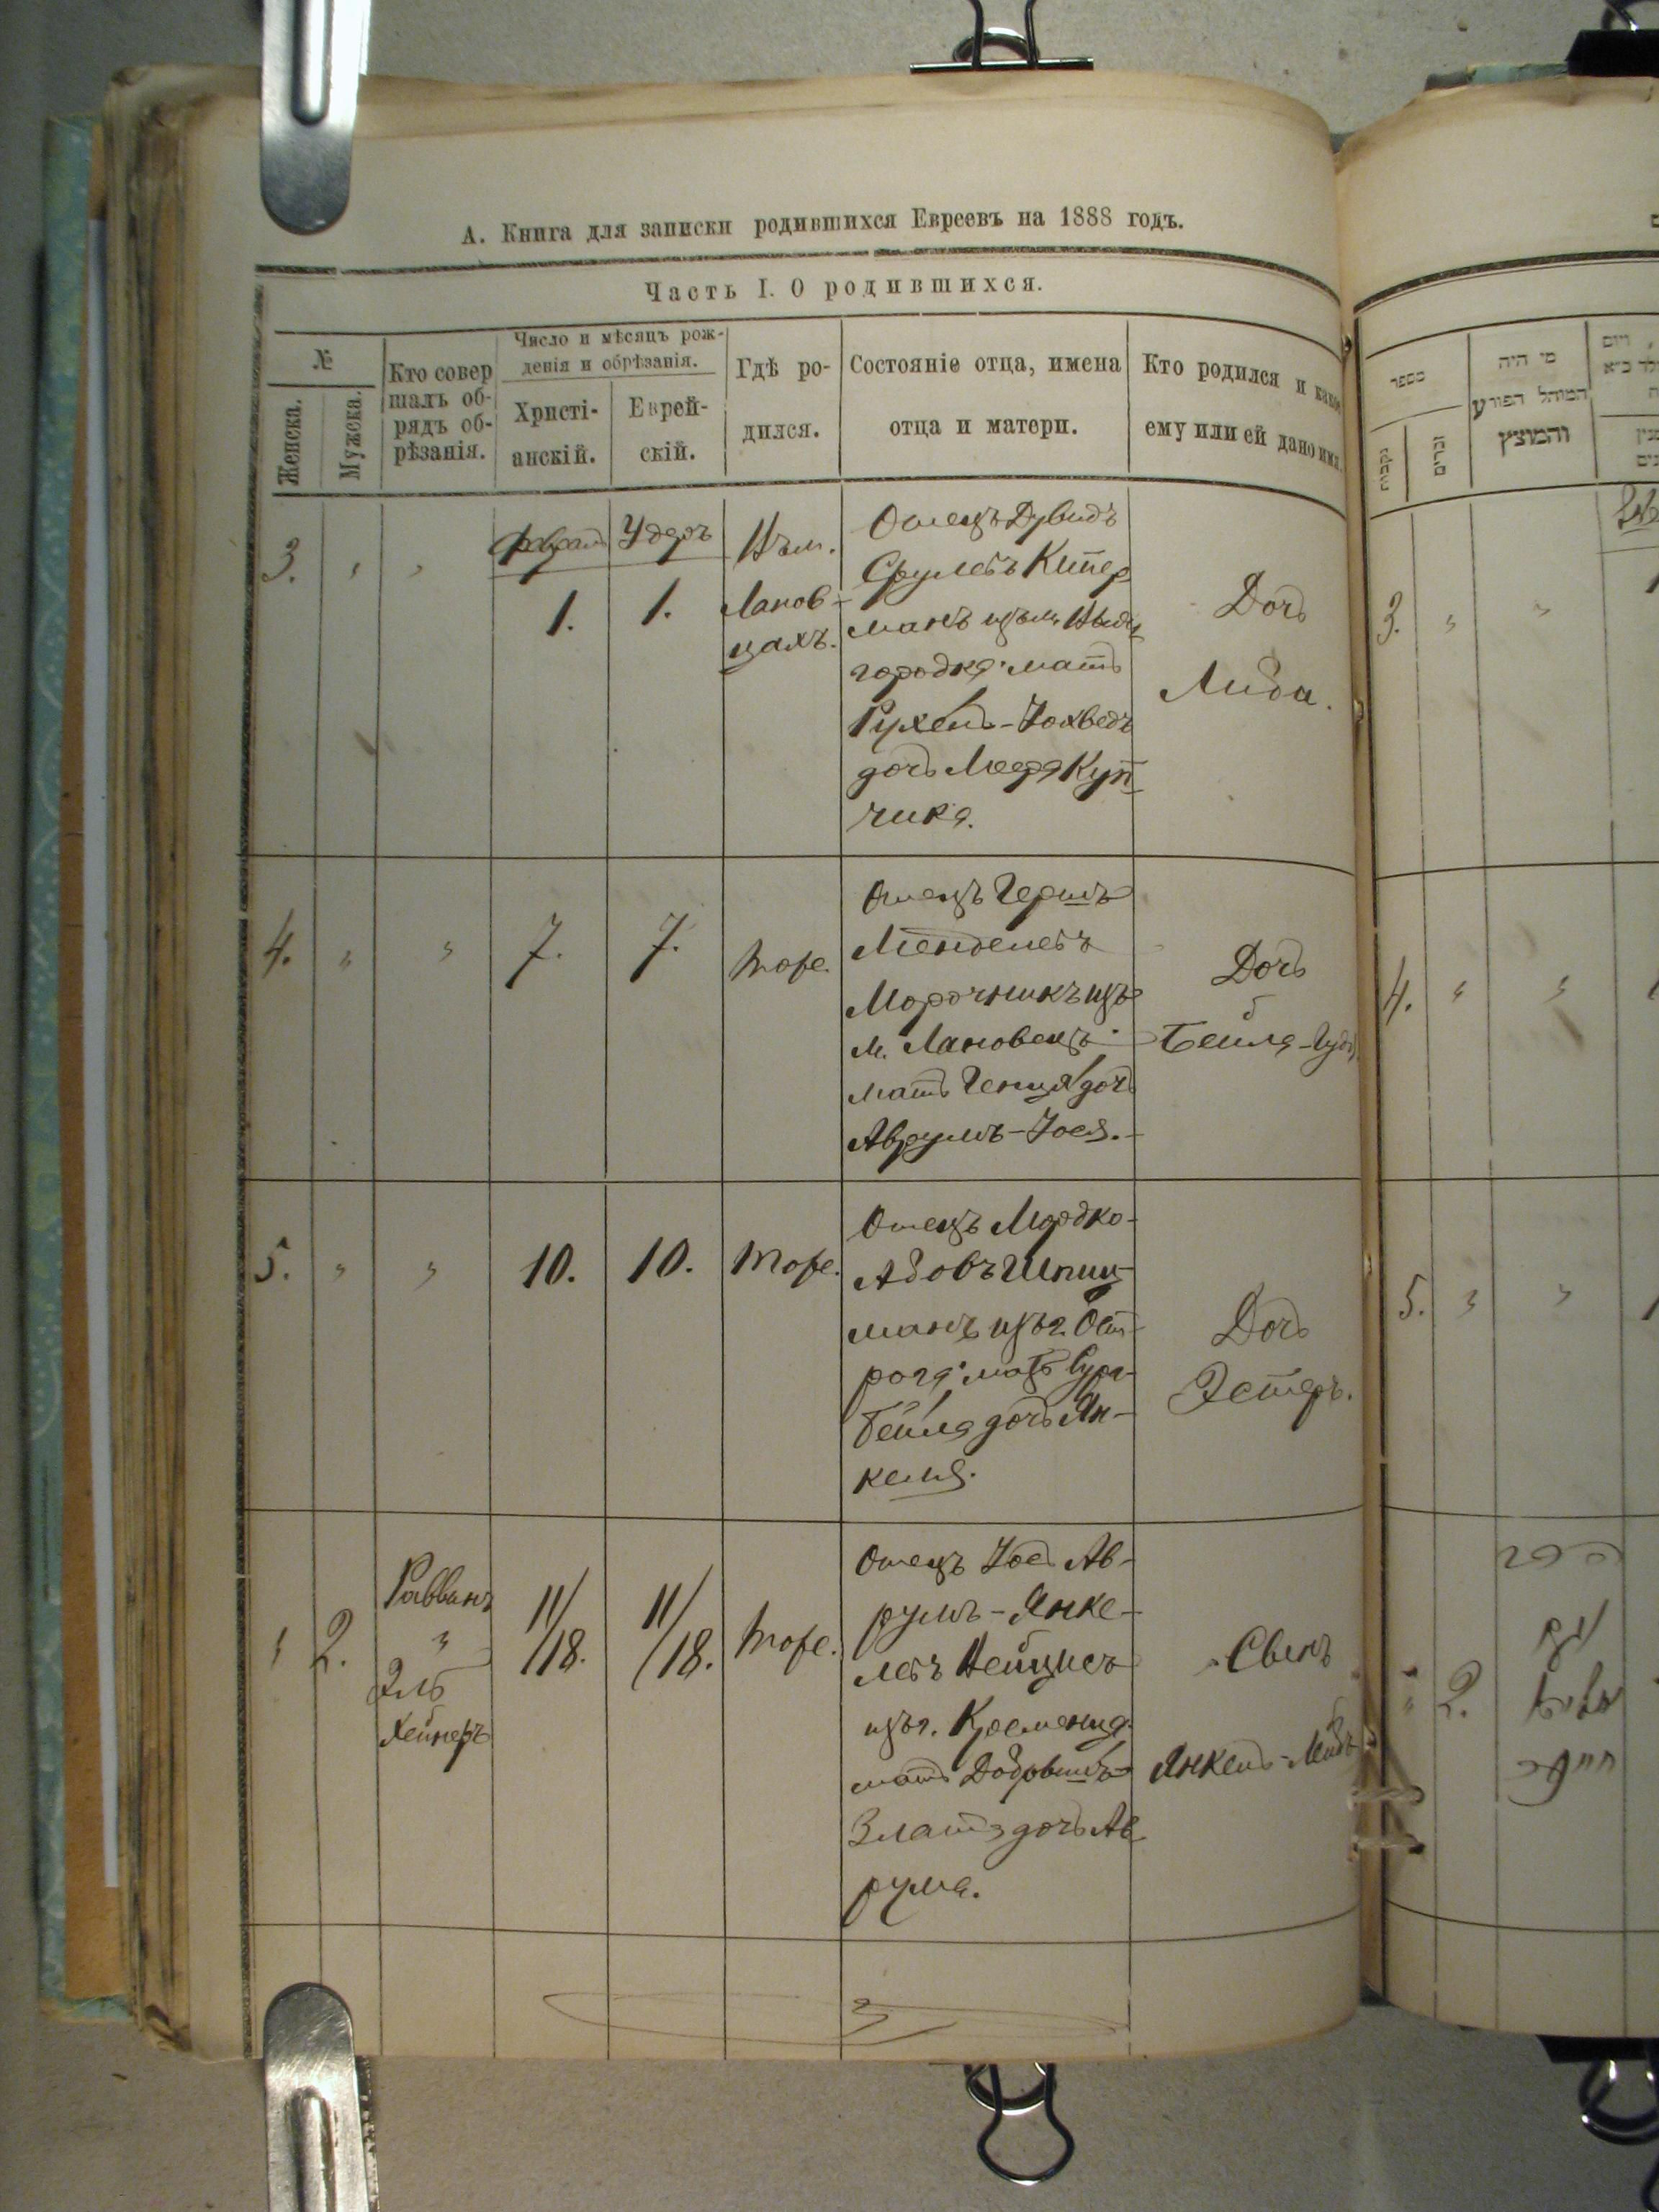 А. Книга для записки родившихся Евреевъ на 1888 годъ.
Часть I. О родившихся.
№
Женска.
Мужска.
Кто совер
шалъ об-
рядъ об-
рѣзанія.
Число и мѣсяцъ рож-
денія и обрѣзанія.
Христі-
анскій.
Еврей-
скій.
Гдѣ ро-
дился.
Состояніе отца, имена
отца и матери.
Кто родился и какое
ему или ей дано имя.
3.
1.
1.
Въ м.
Ланов-
цахъ.
Отецъ Дувидъ
Срулевъ Китер
манъ изъ м.
городка: мать
Рухель-Іохведъ
дочь Куп-
чика.
Дочь
Лида.
4.
7.
7.
Тоже.
Отецъ Гершъ
Менделевъ
Марочникъ изъ
м. Лановецъ:
мать Геня дочь
Аврумъ-Іося.
Дочь
Бейла-
5.
10.
10.
Тоже.
Отецъ Мордко-
Абовъ Шпиц-
манъ изъ г. Ост-
рога: мать Сура-
Бейла дочь Ян-
келя.
Дочь
Эстеръ.
2.
Раввинъ
Хейнеръ
11/
/18.
11/
/18.
Тоже.
Отецъ Іось Ав-
румъ-Янке-
левъ
изъ г. Кременца
мать
Злата дочь Ав-
рума.
Сынъ
Янкель-Лейбъ
מספר
נקבות
זכרים
מי היה
המוהל הפורע
והמוצץ
3.
4.
5.
2.